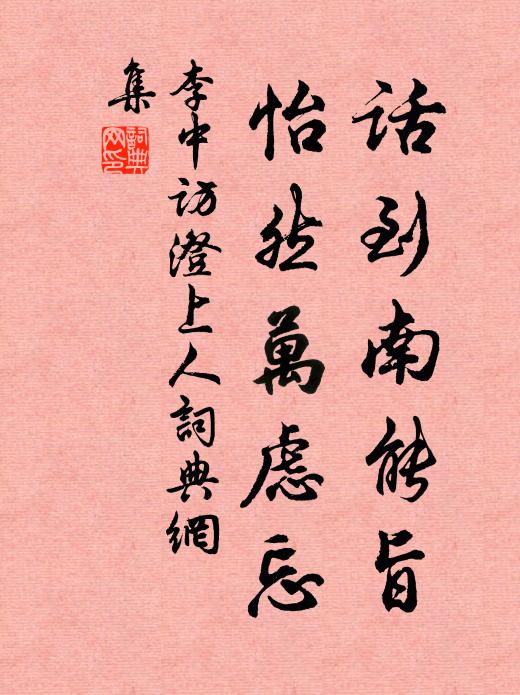 话到南能旨
怡然萬慮忘
李中访澄上人詞典網
集
詞典網印